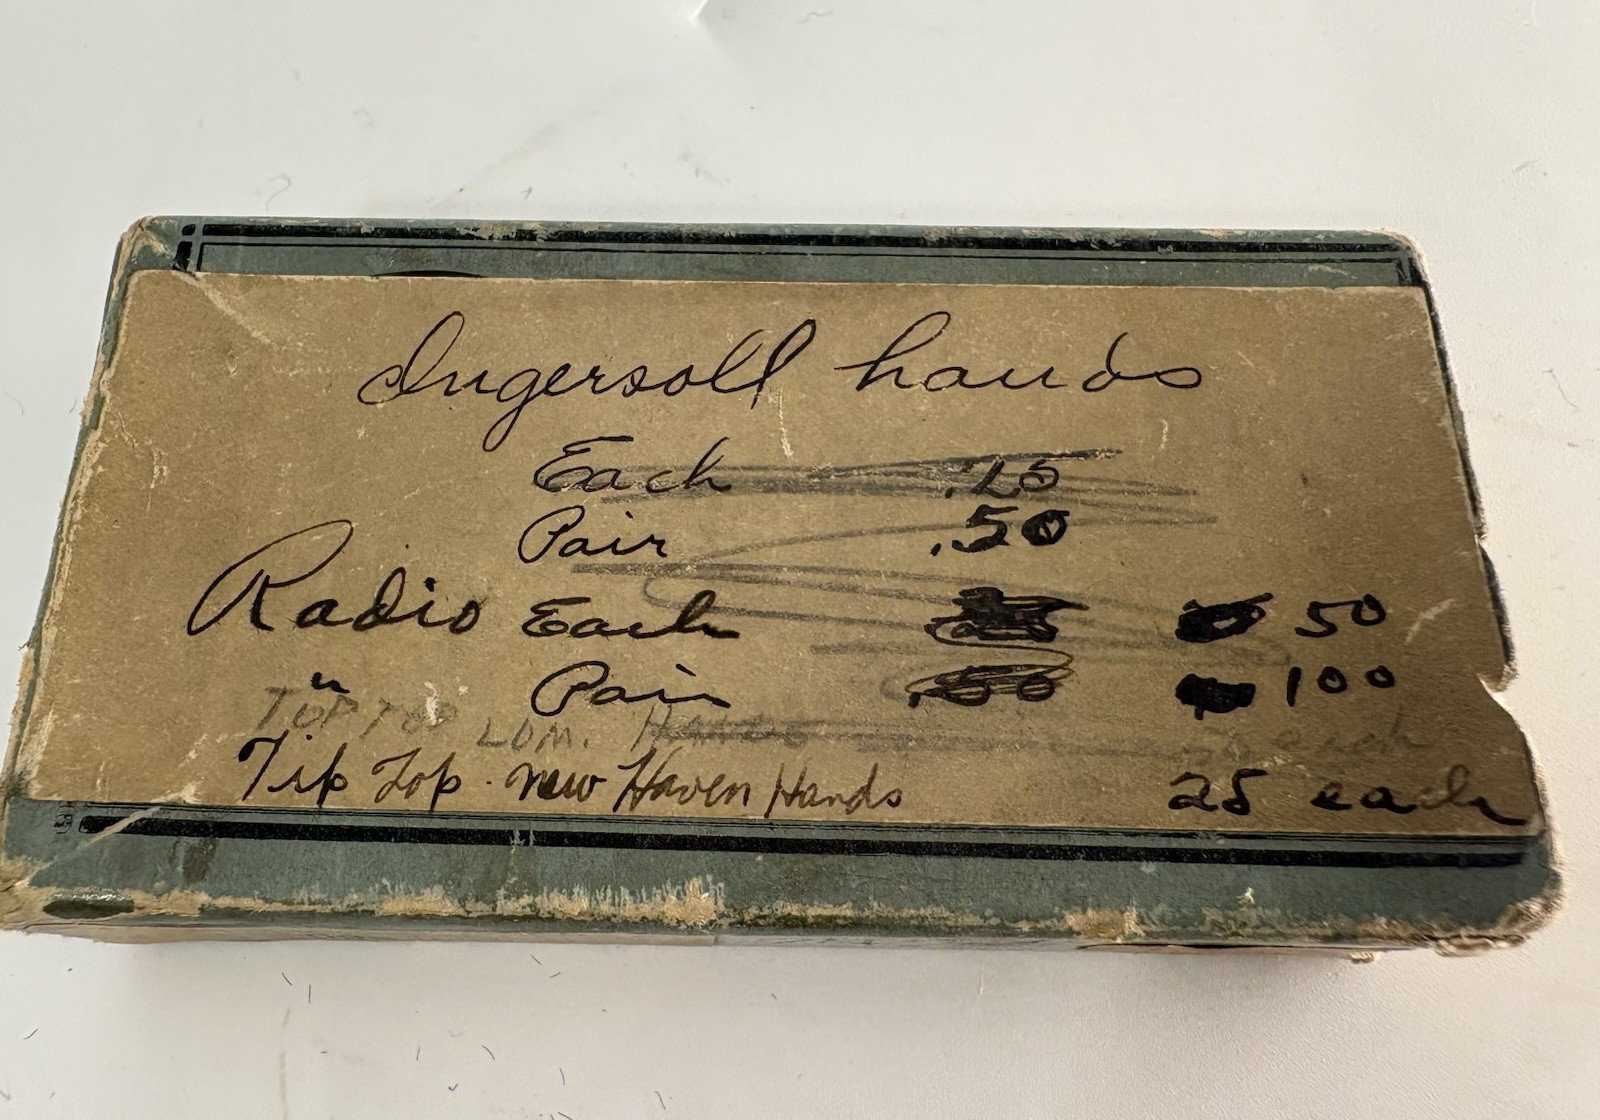 Ingersoll hands
Each .25
Pair .50
Radio Each 50
" Pair .50 100
TIP TOP LUM. HANDS each
Tip Top. New Haven Hands 25 each